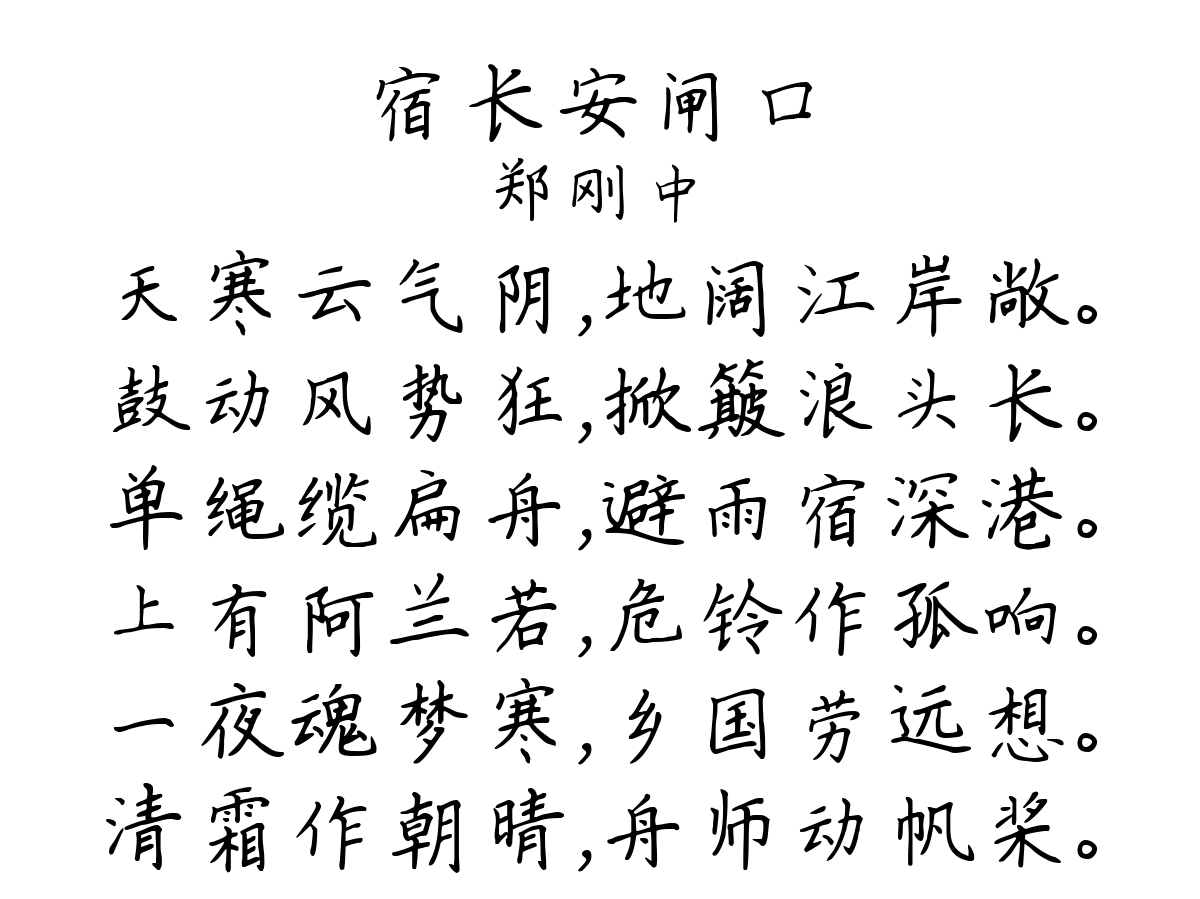 宿长安闸口
郑刚中
天寒云气阴,地阔江岸敞。
鼓动风势狂,掀簸浪头长。
单绳缆扁舟,避雨宿深港。
上有阿兰若,危铃作孤响。
一夜魂梦寒,乡国劳远想。
清霜作朝晴,舟师动帆桨。